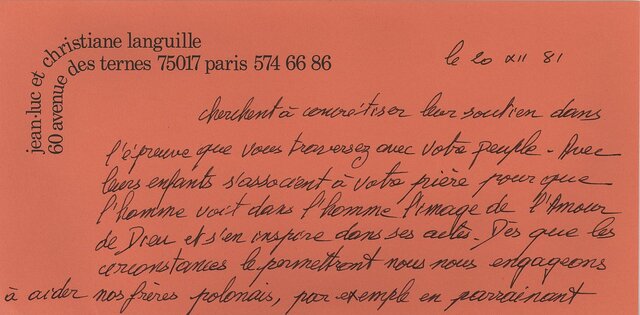 jean-luc et christiane languille
60 avenue des ternes 75017 paris 574 66 86
le 20 XII 81
cherchent à concrétiser leur soutien dans
l'épreuve que vous traversez avec votre peuple - Avec
leurs enfants s'associent à votre pière pour que
l'homme voit dans l'homme l'image de l'Amour
de Dieu et s'en inspire dans ses actes. Dès que les
circonstances le permettront nous nous engageons
à aider nos frères polonais, par exemple en parrainant